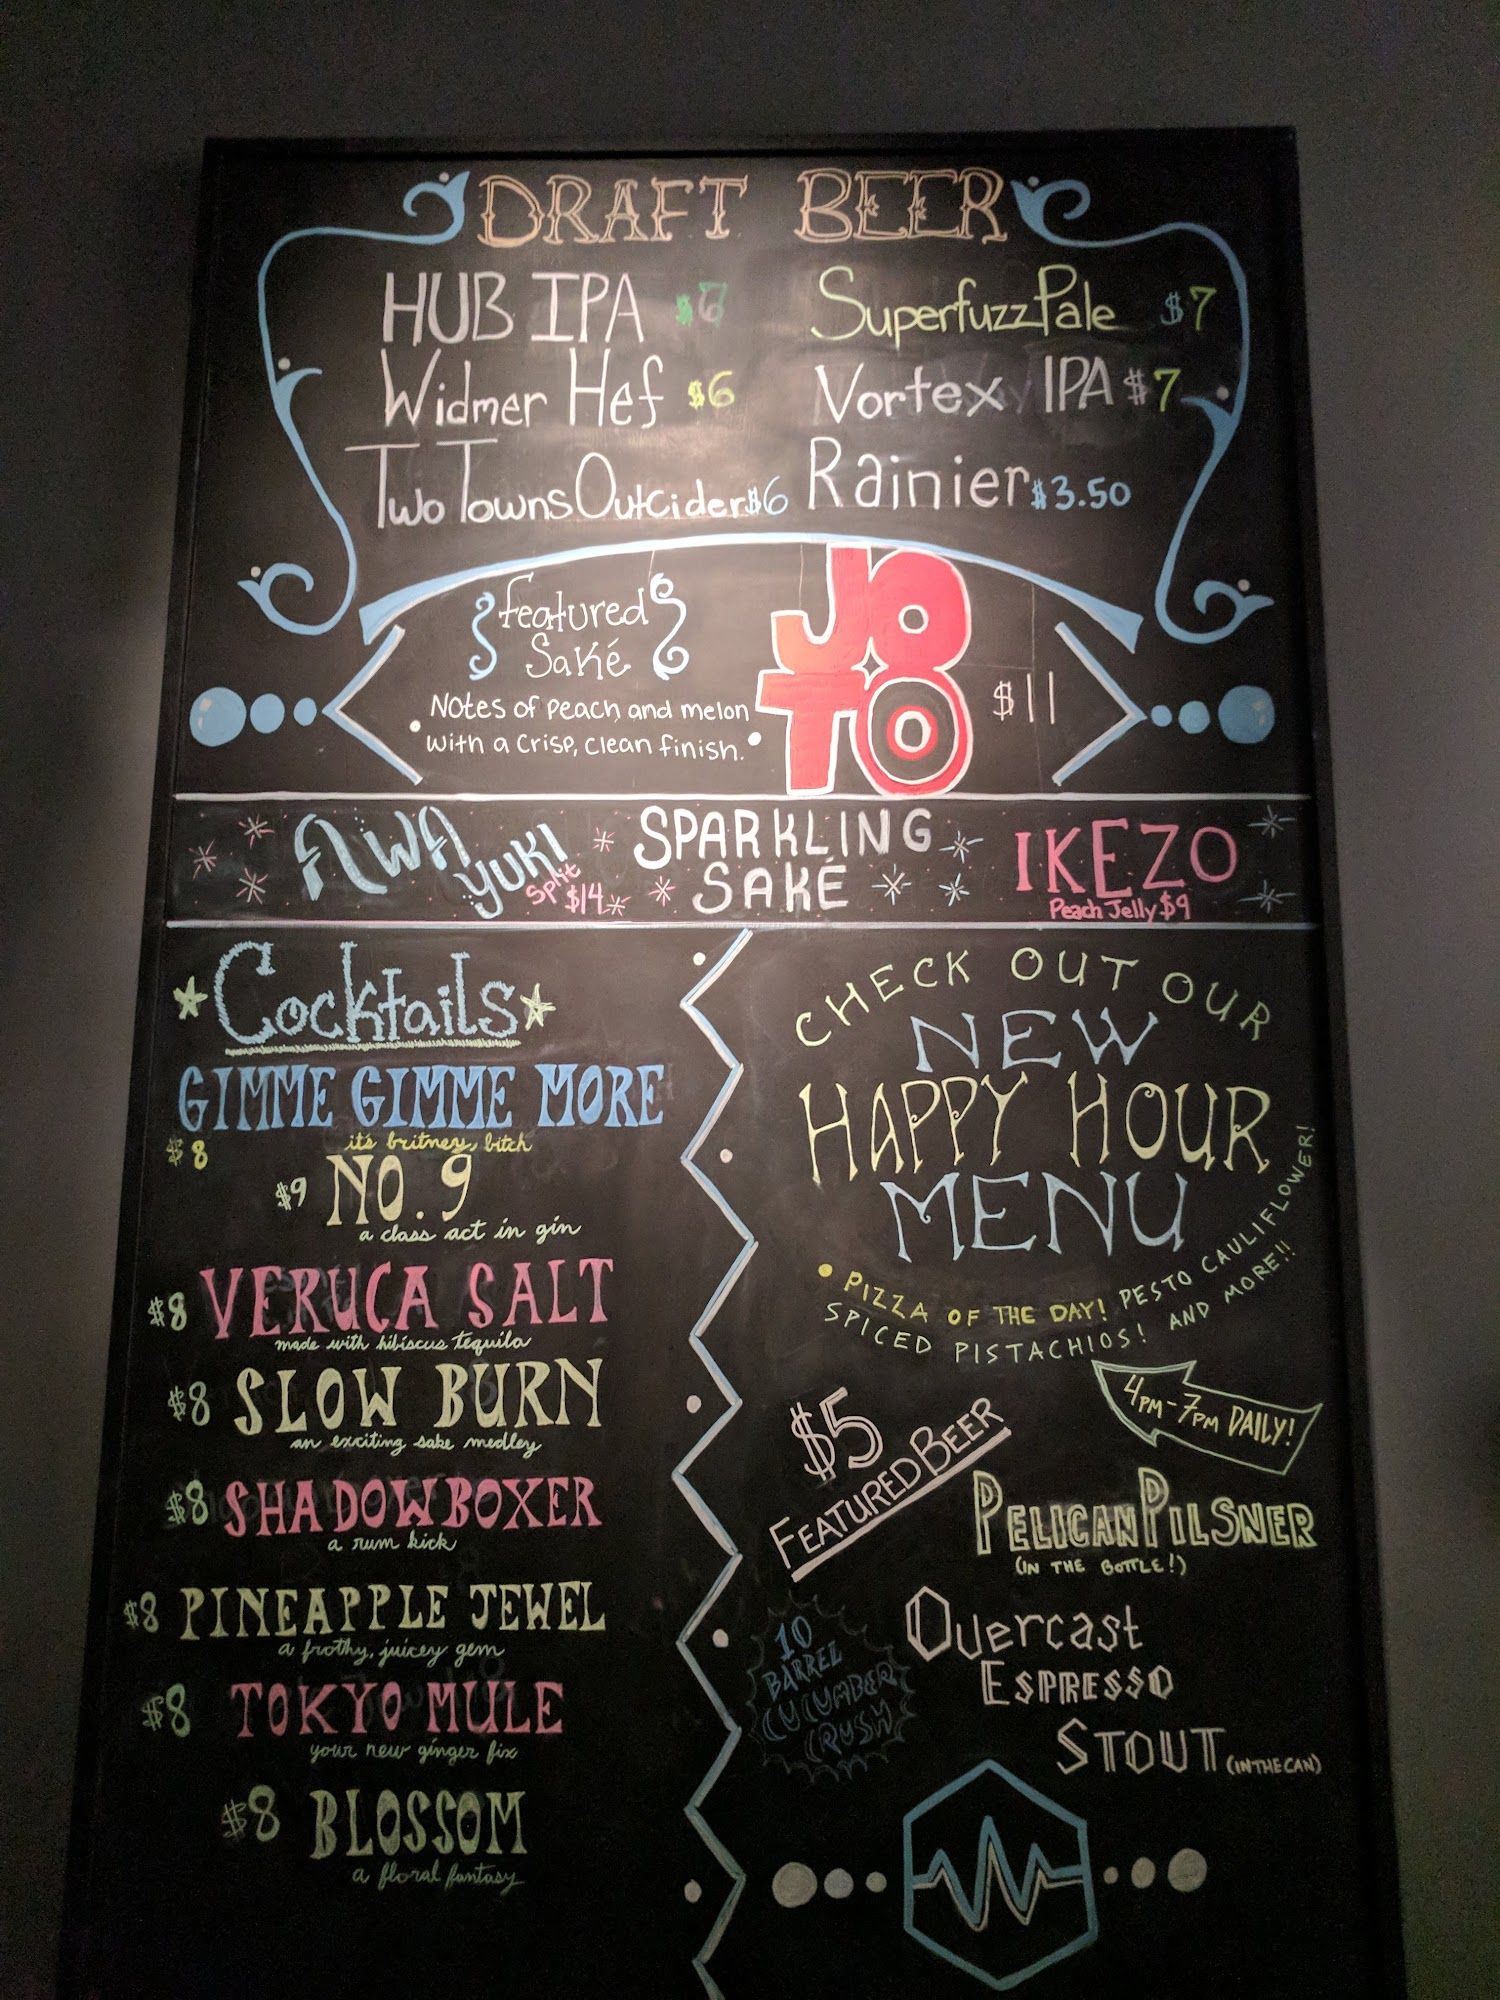 DRAFT BEER
HUB IPA
Superfuzz Pale $7
Widmer Hef $6
Vortex IPA $7
Two Towns Outcider $6
Rainier $3.50
featured
Saké
Notes of peach and melon
with a crisp, clean finish.
JO
TO
$11
AWA
YUKI
Split
$14
SPARKLING
SAKÉ
IKEZO
Peach Jelly $9
Cocktails
GIMME GIMME MORE
$8
its britney, bitch
$9 NO. 9
a class act in gin
$8 VERUCA SALT
made with hibiscus tequila
$8 SLOW BURN
an exciting sake medley
$8 SHADOWBOXER
a rum kick
$8 PINEAPPLE JEWEL
a frothy, juicey gem
$8 TOKYO MULE
your new ginger fix
$8 BLOSSOM
a floral fantasy
CHECK OUT OUR
NEW
HAPPY HOUR
MENU
PIZZA OF THE DAY! PESTO CAULIFLOWER!
SPICED PISTACHIOS! AND MORE!!
4PM-7PM DAILY!
$5
FEATURED BEER
PELICAN PILSNER
(IN THE BOTTLE!)
10
BARREL
CUCUMBER
CRUSH
Overcast
ESPRESSO
STOUT (IN THE CAN)